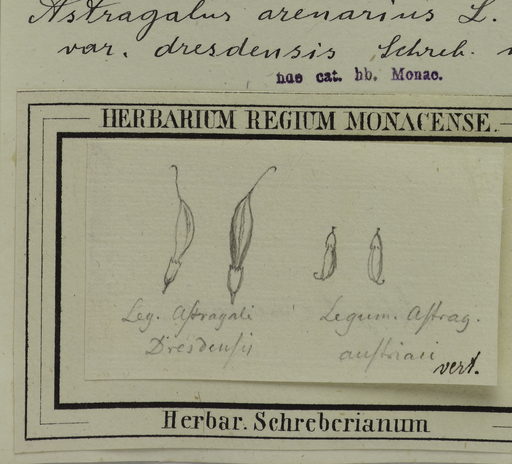 Astragalus arenarius L.
var. dresdensis Schreb.
nae cat. hb. Monac.
HERBARIUM REGIUM MONACENSE.
Leg. Aſtragali
Dresdenſis
Legum. Aſtrag.
auſtriaci
vert.
Herbar. Schreberianum